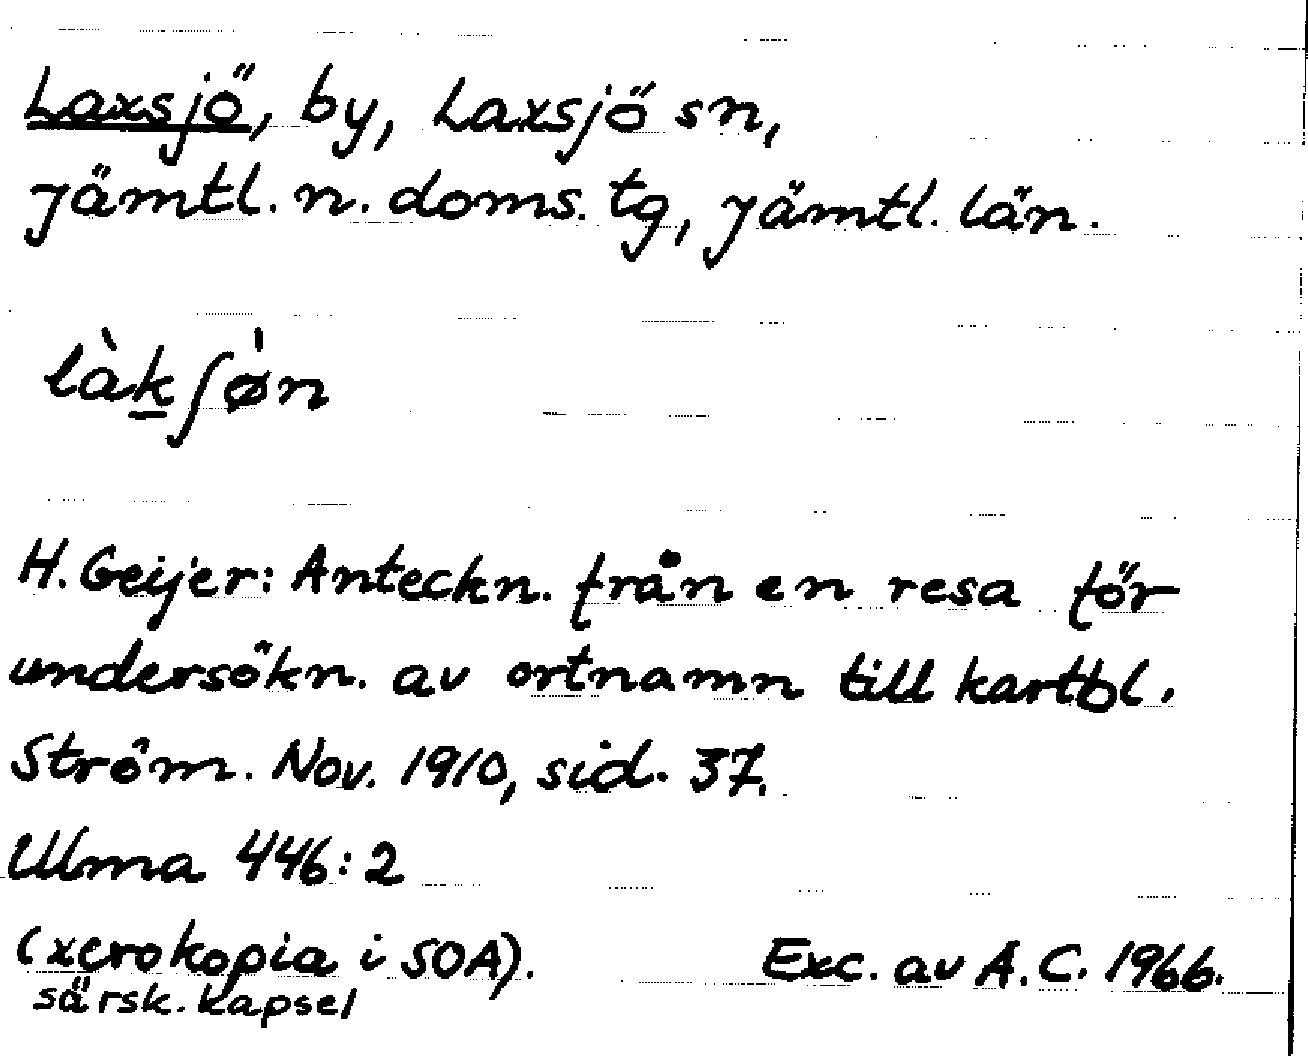 Laxsjö, by, Laxsjö sn,
Jämtl. n. doms. tg, Jämtl. län.
làk̲ʃø̀n
H. Geijer: Anteckn. från en resa för
undersökn. av ortnamn till kartbl.
Ström. Nov. 1910, sid. 37.
Ulma 446:2
(xerokopia i SOA). Exc. av A.C. 1966.
särsk. kapsel